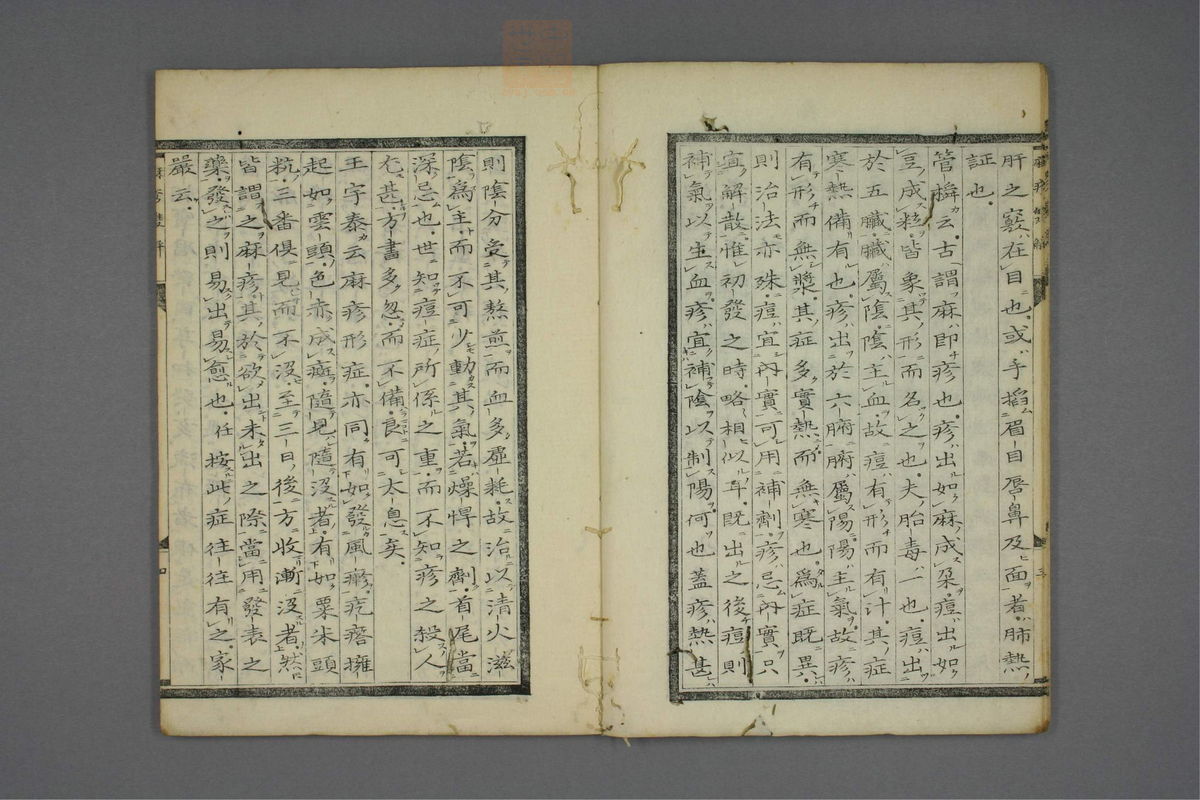 肝之竅在目也或手搯眉目唇鼻及面者肺熱
証也
管橓云古謂麻即疹也疹出如麻成朶痘出如
豆成粒皆象其形而名之也夫胎毒一也痘出
於五臟臟屬陰陰主血故痘有形而有汁其症
寒熱備有也疹出於六腑腑屬陽陽主氣故疹
有形而無漿其症多實熱而無寒也為症既異
則治法亦殊痘宜內實可用補劑疹忌內實只
宜解散惟初發之時略相似耳既出之後痘則
補氣以生血疹宜補陰以制陽何也蓋疹熱甚
則陰分受其熬煎而血多虛耗故治以清火滋
陰為主而不可少動其氣若燥悍之劑首尾當
深忌也世知痘症所係之重而不知疹之殺人
尤甚方書多忽而不備良可太息矣
王宇泰云麻疹形症亦同有如發風㿔疙瘩擁
起如雲頭色赤成斑隨見隨沒者有如粟米頭
粃三番俱見而不沒至三日後方收漸沒者然
皆謂之麻疹其於欲出未出之際當用發表之
藥發之則易出易愈也任按此症往往有之家
嚴云
三
四